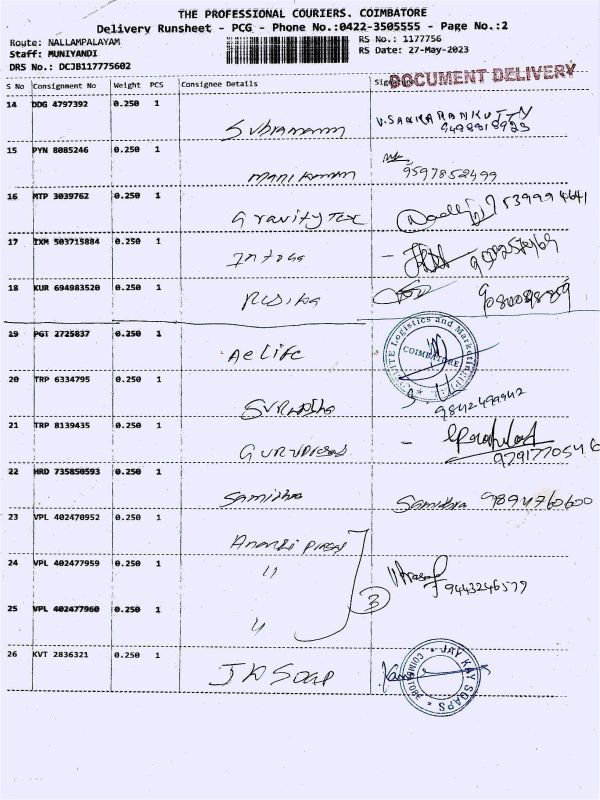 THE PROFESSIONAL COURIERS. COIMBATORE
Delivery Runsheet - PCG - Phone No.:0422-3505555 - Page No.:2
Route: NALLAMPALAYAM
RS No.: 1177756
Staff: MUNIYANDI
RS Date: 27-May-2023
DRS No.: DCJB117775602
DOCUMENT DELIVERY
S No Consignment No Weight PCS Consignee Details
14 DDG 4797392 0.250 1
V.SANKARANKUTTY
15 PYN 8085246 0.250 1
Manikumar 9597852499
16 MTP 3039762 0.250 1
Gravity Tex
17 IXM 503715884 0.250 1
18 KUR 694983520 0.250 1
19 PGT 2725837 0.250 1
Aelife
Logistics and Marketing
COIMBATORE
20 TRP 6334795 0.250 1
9842499942
21 TRP 8139435 0.250 1
Guruprasad
22 HRD 735850593 0.250 1
Samithra Samithra 9894760600
23 VPL 402470952 0.250 1
24 VPL 402477959 0.250 1
"
3
9443246579
25 VPL 402477960 0.250 1
"
26 KVT 2836321 0.250 1
JK Soap
JAY KAY SOAPS
COIMBATORE